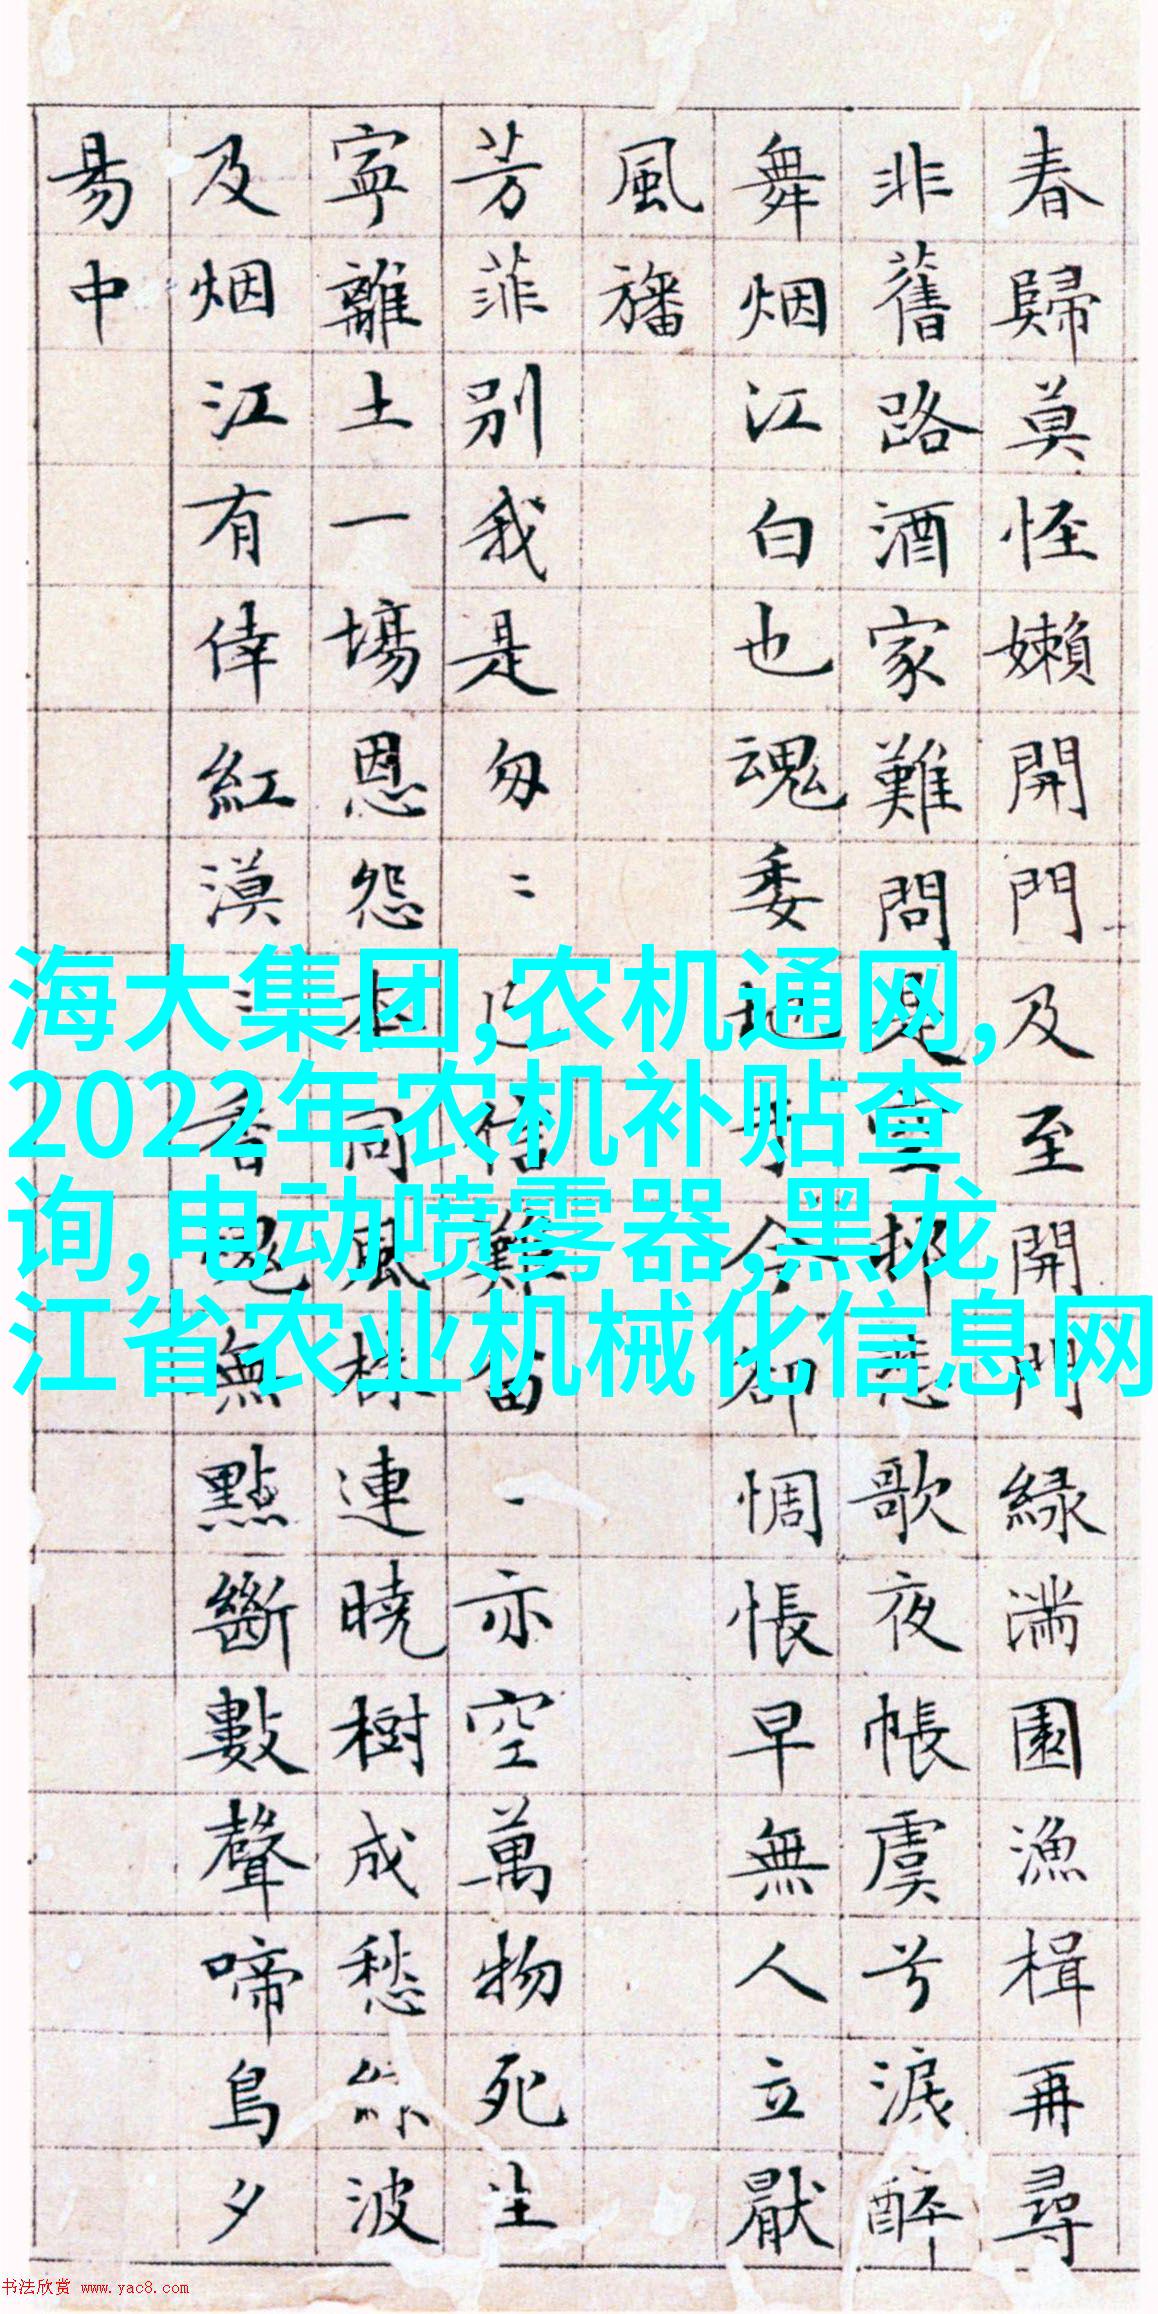 春歸莫怪嬾開門及至開門緑滿園漁楫再尋
非舊路酒家難問是空邨悲歌夜帳虞兮淚醉
舞烟江白也魂委地于今却惆悵早無人立厭
風旛
芳菲別我是匆〻已信難留亦空萬物死生
寧離土一場恩怨本同風株連曉樹成愁波
及烟江有倖紅漠〻香魂無點斷數聲啼鳥夕
昜中
海大集团,农机通网,
2022年农机补贴查
询,电动喷雾器,黑龙
江省农业机械化信息网
书法欣赏 www.yac8.com